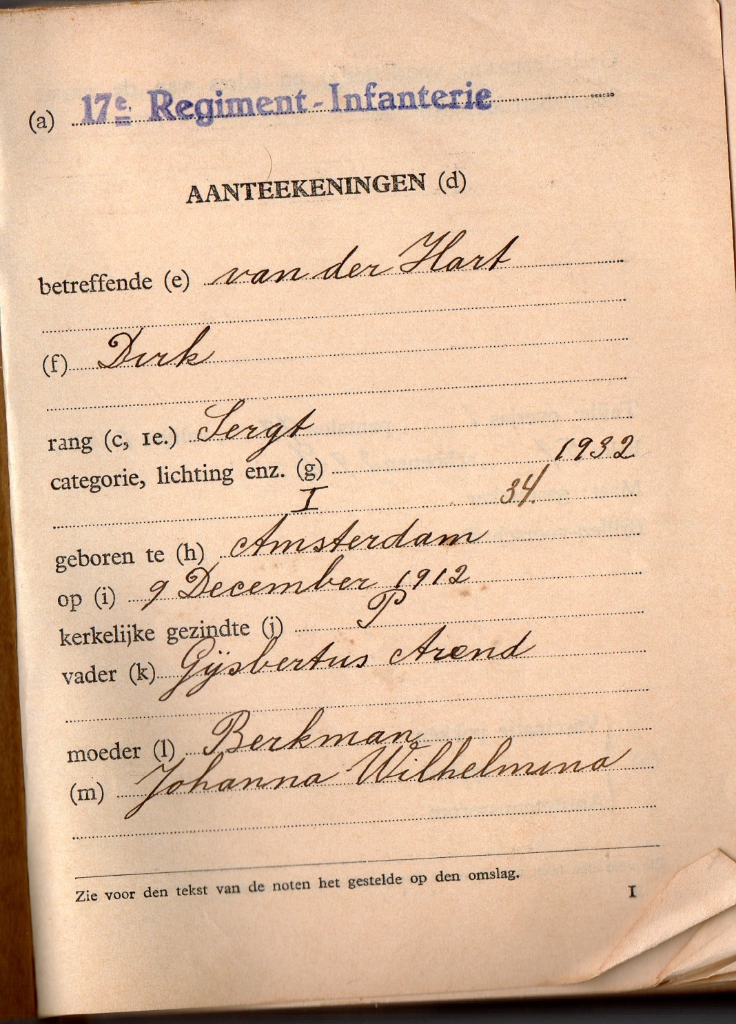 (a) 17e Regiment-Infanterie
AANTEEKENINGEN (d)
betreffende (e) van der Hart
(f) Dirk
rang (c, 1e.) Sergt
categorie, lichting enz. (g) 1932
I 34.
geboren te (h) Amsterdam
op (i) 9 December 1912
kerkelijke gezindte (j) P
vader (k) Gijsbertus Arend
moeder (l) Berkman
(m) Johanna Wilhelmina
Zie voor den tekst van de noten het gestelde op den omslag.
1